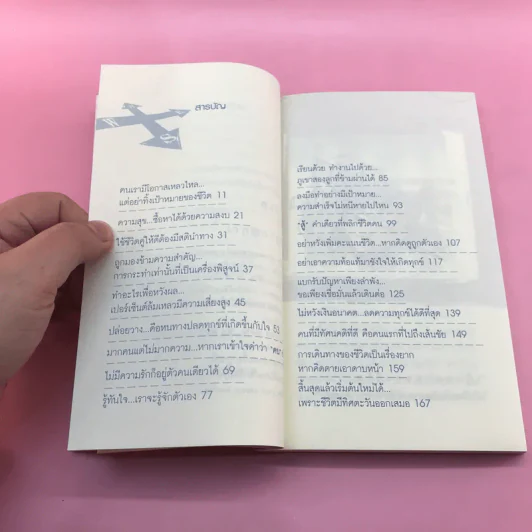 สารบัญ
คนเรามีโอกาสเหลวไหล...
แต่อย่าทิ้งเป้าหมายของชีวิต 11
ความสุข...ซื้อหาได้ด้วยความสงบ 21
ใช้ชีวิตคู่ให้ดีต้องมีสตินำทาง 31
ถูกมองข้ามความสำคัญ...
การกระทำเท่านั้นที่เป็นเครื่องพิสูจน์ 37
ทำอะไรเผื่อหวังผล...
เปอร์เซ็นต์ล้มเหลวมีความเสี่ยงสูง 45
ปล่อยวาง...คือหนทางปลดทุกข์ที่เกิดขึ้นกับใจ 53
มากคนแต่ไม่มากความ...หากเราเข้าใจคำว่า
ไม่มีความรักก็อยู่ตัวคนเดียวได้ 69
รู้ทันใจ...เราจะรู้จักตัวเอง 77
เรียนด้วย ทำงานไปด้วย...
ภูเขาสองลูกที่ข้ามผ่านได้ 85
ลงมือทำอย่างมีเป้าหมาย...
ความสำเร็จไม่หนีหายไปไหน 93
"สู้" คำเดียวที่พลิกชีวิตคน 99
อย่าหวังเพิ่มคะแนนชีวิต...หากคิดดูถูกตัวเอง 107
อย่าเอาความท้อแท้มาขังใจให้เกิดทุกข์ 117
แบกรับปัญหาเพียงลำพัง...
ขอเพียงเชื่อมั่นแล้วเดินต่อ 125
ไม่หวังเงินอนาคต...ลดความทุกข์ได้ดีที่สุด 139
คนที่มีทัศนคติที่ดี คือคนแรกที่ไปถึงเส้นชัย 149
การเดินทางของชีวิตเป็นเรื่องยาก
หากคิดตายเอาดาบหน้า 159
สิ้นสุดแล้วเริ่มต้นใหม่ได้...
เพราะชีวิตมีทิศตะวันออกเสมอ 167